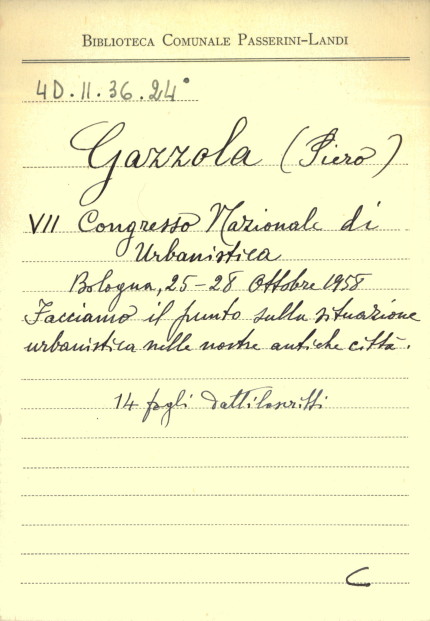 BIBLIOTECA COMUNALE PASSERINI-LANDI
4D.II.36.24°
Gazzola (Piero)
VII Congresso Nazionale di
Urbanistica
Bologna, 25-28 Ottobre 1958
Facciamo il punto sulla situazione
urbanistica nelle nostre antiche città.
14 fogli dattiloscritti
C